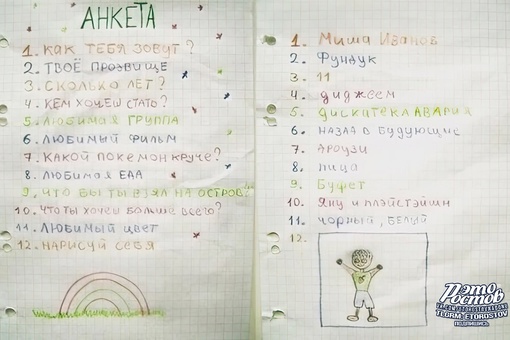 АНКЕТА
1. КАК ТЕБЯ ЗОВУТ?
2. ТВОЁ ПРОЗВИЩЕ
3. СКОЛЬКО ЛЕТ?
4. КЕМ ХОЧЕШ СТАТЬ?
5. ЛЮБИМАЯ ГРУППА
6. ЛЮБИМЫЙ ФИЛЬМ
7. КАКОЙ ПОКЕМОН КРУЧЕ?
8. ЛЮБИМАЯ ЕДА
9. ЧТО БЫ ТЫ ВЗЯЛ НА ОСТРОВ?
10. ЧТО ТЫ ХОЧЕШ БОЛЬШЕ ВСЕГО?
11. ЛЮБИМЫЙ ЦВЕТ
12. НАРИСУЙ СЕБЯ
1. Миша Иванов
2. Фундук
3. 11
4. диджеем
5. ДИСКИТЕКА АВАРИЯ
6. НАЗАД В БУДУЮЩИЕ
7. АРОУЗИ
8. ПИЦА
9. Буфет
10. Яну и плэйстэйшн
11. ЧОРНЫЙ, БЕЛЫЙ
12.
Это
Ростов
VK.COM/ETOROSTOVNADONU
TLGRM: ETOROSTOV
ПОДПИШИСЬ